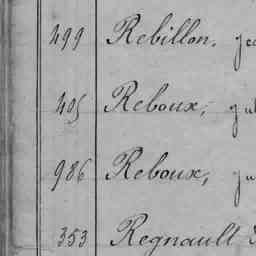 499 Rebillon,
405 Reboux,
986 Reboux,
353 Regnault